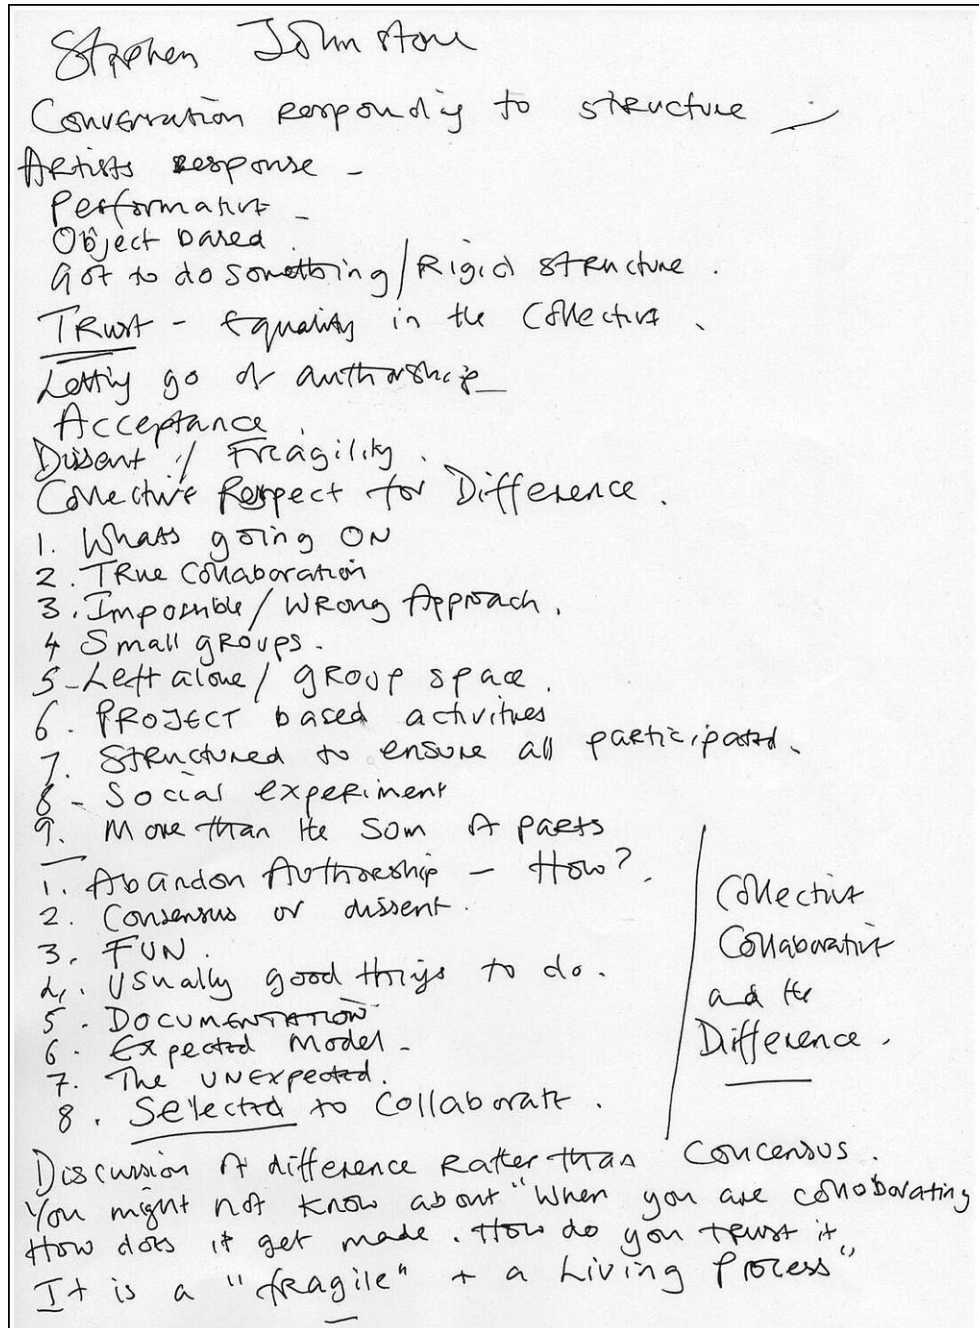 Stephen Johnstone
Conversation responding to structure
Artists response -
Performative -
Object based.
got to do something / Rigid structure.
Trust - Equality in the Collective.
Letting go of authorship -
Acceptance
Dissent / Freagility.
Collective Respect for Difference.
1. Whats going ON
2. TRue Collaboration
3. Impossible / WRong Approach.
4 Small gRoups.
5 - Left alone / gRoup space.
6. PROJECT based activities
7. Structured to ensure all participated.
8 - Social experiment
9. More than the Som of parts
1. Abandon Authorship - How?
2. Consensus or dissent.
3. FUN.
4. Usually good things to do.
5. DOCUMENTATION
6. Expected Model -
7. The UNExpected.
8. Selected to Collaborate.
Collective
Collaborative
and the
Difference.
Discussion of difference Ratter than Concensus.
You might not know about "When you are colloborating
How does it get made. How do you trust it
It is a "fragile" + a Living Process"